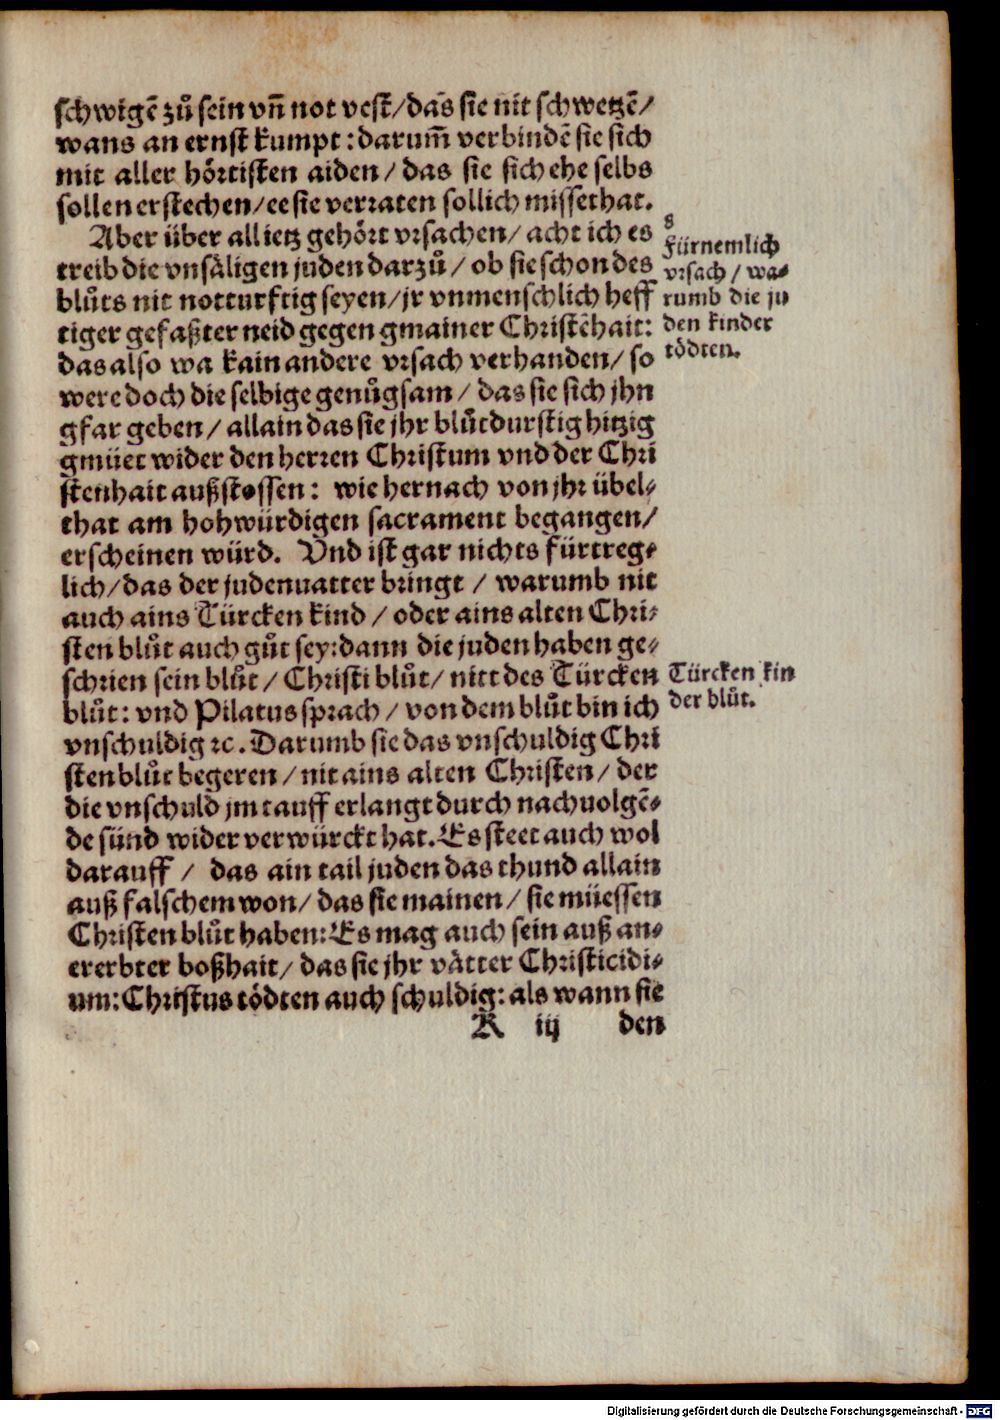 schwigē zů sein vñ not vest/das sie nit schwetzē/
wans an ernst kumpt: darum̄ verbindē sie sich
mit aller hörtisten aiden/ das sie sich ehe selbs
sollen erstechen/ee sie verraten sollich missethat.
Aber über all ietz gehört vrsachen/ acht ich es
treib die vnsäligen juden darzů/ ob sie schon des
blůts nit notturftig seyen/jr vnmenschlich heff
tiger gefaßter neid gegen gmainer Christēhait:
das also wa kain andere vrsach verhanden/ so
were doch die selbige genůgsam/ das sie sich jhn
gfar geben/ allain das sie jhr blůtdurstig hitzig
gmüet wider den herren Christum vnd der Chri
stenhait außstossen: wie hernach von jhr übel⸗
that am hohwürdigen sacrament begangen/
erscheinen würd. Vnd ist gar nichts fürtreg⸗
lich/das der judenuatter bringt / warumb nit
auch ains Türcken kind / oder ains alten Chri⸗
sten blůt auch gůt sey: dann die juden haben ge⸗
schrien sein blůt/ Christi blůt/ nitt des Türcken
blůt: vnd Pilatus sprach / von dem blůt bin ich
vnschuldig ꝛc. Darumb sie das vnschuldig Chri
sten blůt begeren/nit ains alten Christen/ der
die vnschuld jm tauff erlangt durch nachuolgē⸗
de sünd wider verwürckt hat. Es steet auch wol
darauff / das ain tail juden das thund allain
auß falschem won/ das sie mainen/ sie müessen
Christen blůt haben: Es mag auch sein auß an⸗
ererbter boßhait/ das sie jhr vätter Christicidi⸗
um: Christus tödten auch schuldig: als wann sie
K iij den
8
Fürnemlich
vrsach/ wa⸗
rumb die ju
den kinder
tödten.
Türcken kin
der blůt.
Digitalisierung gefördert durch die Deutsche Forschungsgemeinschaft - DFG